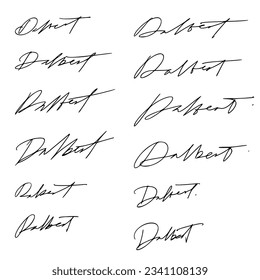 Dalbert Dalbert
Dalbert Dalbert
Dalbert Dalbert.
Dalbert Dalbert.
Dalbert Dalbert.
Dalbert Dalbert
shutterstock.com · 2341108139